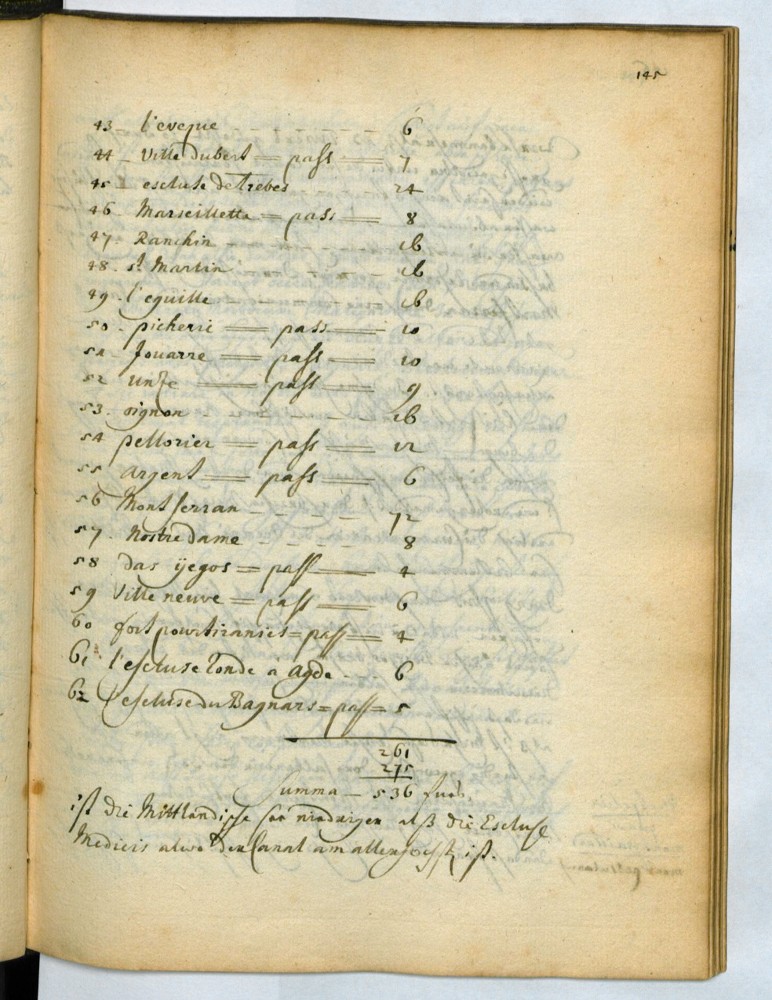 145
43 l'eveque - - - - 6
44 - Ville dubert = pass = 7
45 - escluse de Trebes 24
46 - Marseillette = pass = 8
47 - Ranchin - - - - 16
48 - st Martin - - - - 16
49 - l'eguille - - - - 16
50 - picherie = pass = 10
51 - Jouarre = pass = 10
52 - = pass = 9
53 - oignon - - - - 16
54 pellorier = pass = 12
55 argent = pass = 6
56 Mont ferran - - - - 12
57 - Nostre dame - - - - 8
58 das ÿegos = pass = 4
59 Ville neuve = pass = 6
60 fort = pass = 4
61 l'escluse Ronde a Agde - - - 6
62 l'escluse du Bagnars = pass = 5
261
275
Summa - 536 fues,
ist die Mittländisse See niedriger alß die Escluse
Medicis alwo den Canal am allerhochst ist.